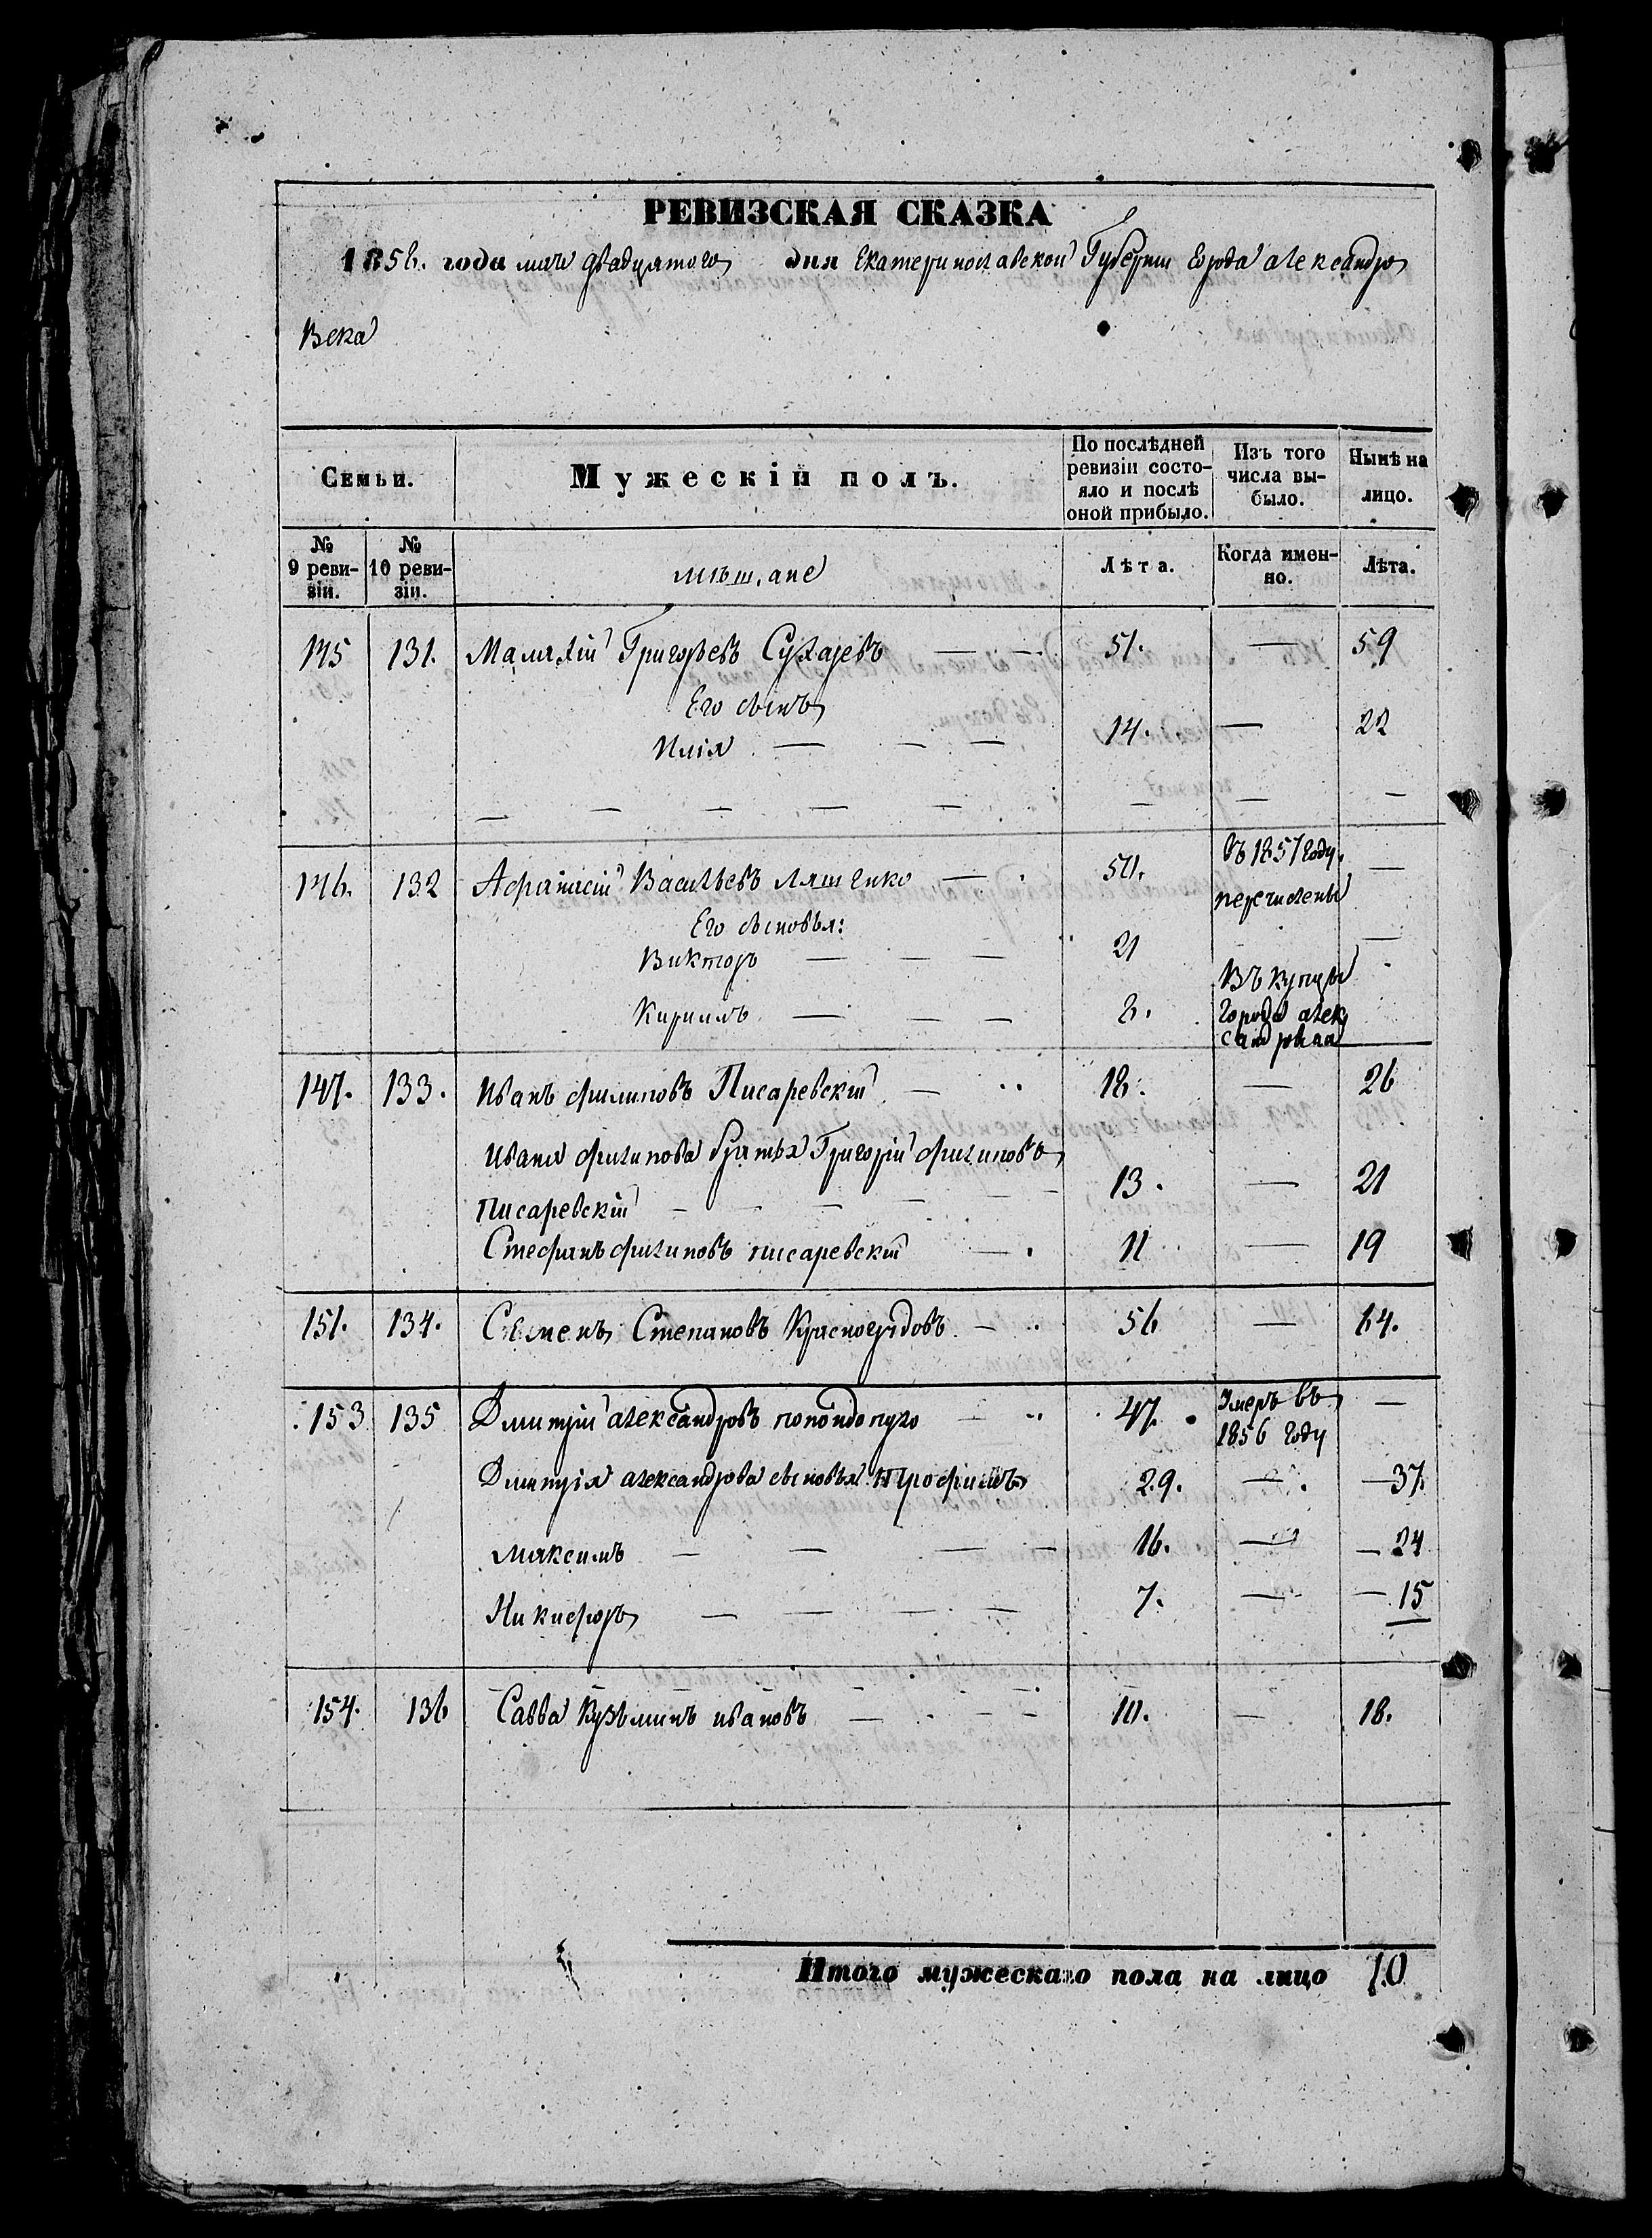 РЕВИЗСКАЯ СКАЗКА
1858. года мая двадцятого дня Екатеринославской Губернiи Города александро
вска
Семьи. Мужескiй полъ. По послѣдней ревизiи состояло и послѣ оной прибыло. Изъ того числа выбыло. Нынѣ на лицо.
№ 9 ревизiи. № 10 ревизiи. мѣщане Лѣта. Когда именно. Лѣта.
145 131. Малахiй Григорьевъ Сухаревъ — — 51. — 59
Его сынъ
Илiя — — — 14. — 22
146. 132 Афанасiй Васильевъ Ляшенко — 50. Въ 1851 году —
перечислены
Его сыновья:
Викторъ — — — 21 —
въ купцы
Кирилъ — — — 8. города алек
сандровка
147. 133. Иванъ филиповъ Писаревскiй — 18. — 26
Ивана филипова братья Григорiй филиповъ
Писаревскiй — — — 13. — 21
Стефанъ филиповъ писаревскiй — 11 — 19
151. 134. Семенъ Степановъ Красногрудовъ — 56 — 64.
153 135 Дмитрiй александровъ попондопуло — 47. Умеръ въ —
1856 году
Дмитрiя александрова сыновья Трофимъ 29. — 37.
Максимъ — — — — 16. — 24
Никифоръ — — — — 7. — 15
154. 136 Савва Кузьминъ ивановъ — — — 10. — 18.
Итого мужескаго пола на лицо 10